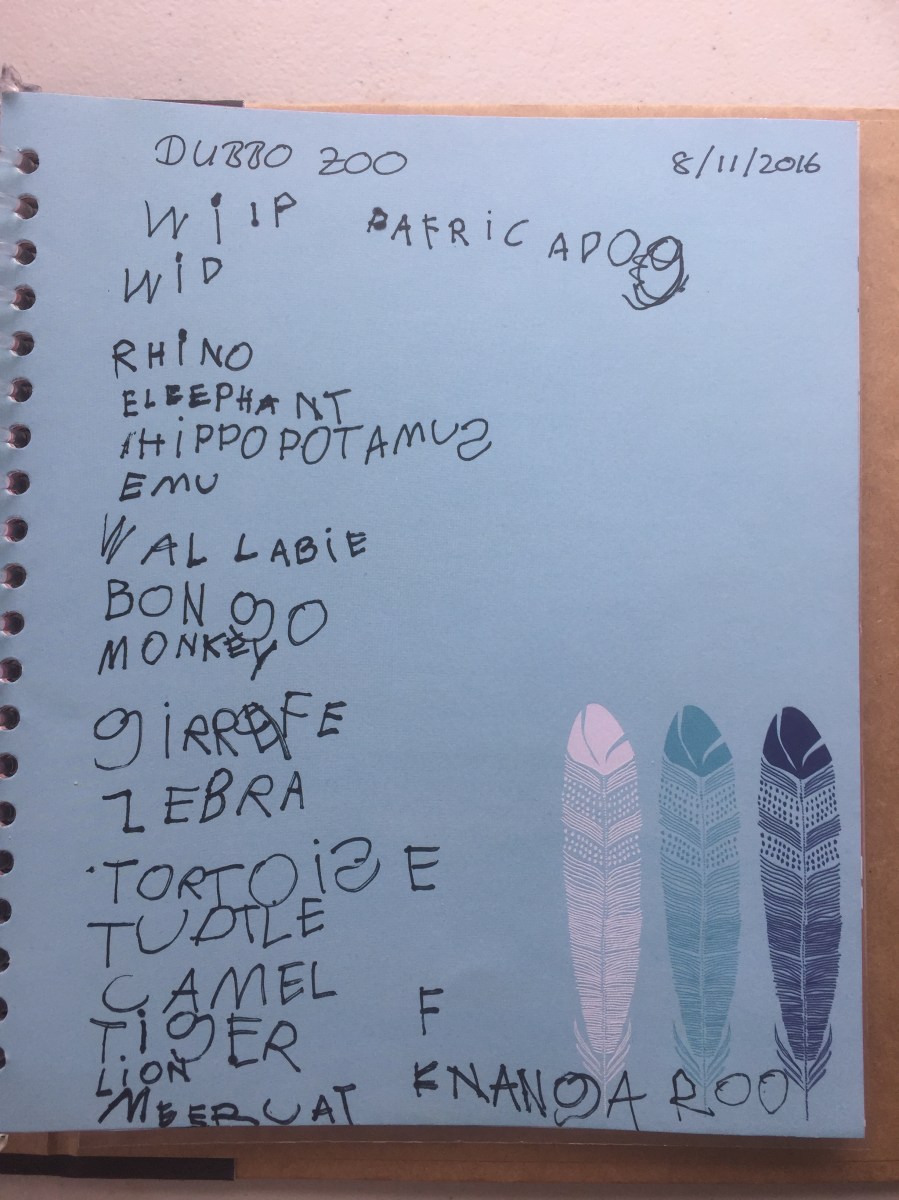 DUBBO ZOO 8/11/2016
WiIP AFRiCADOg
WiD
RHiNO
ELEEPHANT
HiPPOPOTAMUS
EMU
WALLABiE
BONgO
MONKEY
giRRAFE
ZEBRA
TORTOiSE
TUDTLE
CAMEL
TigER F
LiON
MEERCAT KNANgAROO